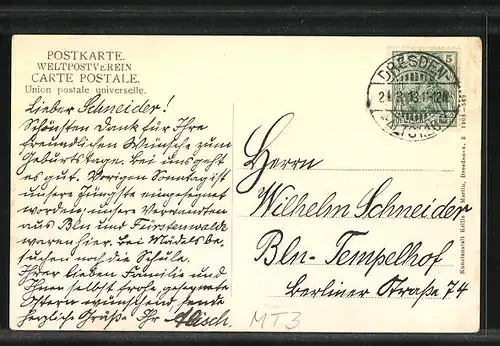 POSTKARTE.
WELTPOSTVEREIN
CARTE POSTALE.
Union postale universelle.
Lieber Schneider!
Schönsten Dank für Ihre
freundlichen Wünsche zum
Geburtstage. Bei uns geht
es gut. Vorigen Sonntag ist
unsere Jüngste eingesegnet
worden, unsere Verwandten
aus Bln und Fürstenwalde
waren hier. Bei Mädels be-
suchen noch die Schule.
Ihrer lieben Familie und
Ihnen selbst frohe gesegnete
Ostern wünschend, sende
herzliche Grüße. Ihr
DRESDEN-
5
Herrn
Wilhelm Schneider
Bln- Tempelhof
Berliner Straße 74
MT3
Kunstanstalt Krille & Martin, Dresden-A.